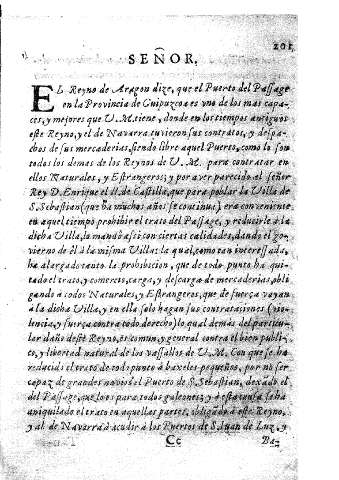 201
SEÑOR.
EL Reyno de Aragon dize, que el Puerto del Passage
en la Provincia de Guipuzcoa es vno de los mas capa-
ces, y mejores que V. M. tiene, donde en los tiempos antiguos
este Reyno, y el de Navarra tuvieron sus contratos, y despa-
chos de sus mercaderias, siendo libre aquel Puerto, como lo son
todos los demas de los Reynos de V. M. para contratar en
ellos Naturales, y Estrangeros; y por aver parecido al señor
Rey D. Enrique el II. de Castilla, que para poblar la Villa de
S. Sebastian (que ha muchos años se continua) era conveniente
en aquel tiempo prohibir el trato del Passage, y reducirle à la
dicha Villa, lo mandò assi con ciertas calidades, dando el go-
vierno de èl à la misma Villa: la qual, como tan interessada,
ha alargado tanto la prohibicion, que de todo punto ha qui-
tado el trato, y comercio, carga, y descarga de mercaderias, obli-
gando à todos Naturales, y Estrangeros, que de fuerça vayan
à la dicha Villa, y en ella solo hagan sus contrataciones (vio-
lencia, y fuerça contra todo derecho) lo qual demàs del particu-
lar daño deste Reyno, es comun, y general contra el bien publi-
co, y libertad natural de los vassallos de V. M. Con que se ha
reducido el trato de todo punto à baxeles pequeños, por no ser
capaz de grandes navios el Puerto de S. Sebastian, dexado el
del Passage, que lo es para todos galeones; y à esta causa se ha
aniquilado el trato en aquellas partes, obligando à este Reyno,
y al de Navarra à acudir à los Puertos de S. Juan de Luz, y
Cc
Ba-